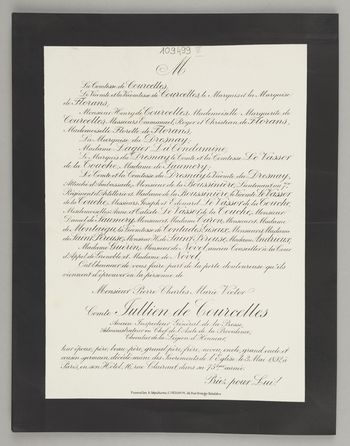 109499
M
La Comtesse de Courcelles,
Le Vicomte et la Vicomtesse de Courcelles, le Marquis et la Marquise
de Florans,
Monsieur Henry de Courcelles, Mademoiselle Marguerite de
Courcelles, Messieurs Emmanuel, Roger et Christian de Florans,
Mademoiselle Florette de Florans,
La Marquise du Dresnay,
Madame Lagier La Condamine,
Le Marquis du Dresnay, le Comte et la Comtesse Le Vassor
de la Touche, Madame de Saumery,
Le Comte et la Comtesse du Dresnay, le Vicomte du Dresnay,
Attaché d'Ambassade, Monsieur de la Boussinière, Lieutenant au 7me
Régiment d'Artillerie et Madame de la Boussinière, le Vicomte Le Vassor
de la Touche, Messieurs Joseph et Edouard Le Vassor de la Touche,
Mesdemoiselles Anne et Le Vassor de la Touche, Monsieur
de Saumery, Monsieur et Madame Caron, Monsieur et Madame
de Montaigu, la Vicomtesse de Contades-Gizeux, Monsieur et Madame
de Saint-Péreuse, Monsieur H. de Saint-Péreuse, Madame Andrieux,
Madame Guérin, Monsieur de Novel, ancien Conseiller à la Cour
d'Appel de Grenoble, et Madame de Novel,
Ont l'honneur de vous faire part de la perte douloureuse qu'ils
viennent d'éprouver en la personne de
Monsieur Pierre Charles Marie Victor
Comte Jullien de Courcelles
Ancien Inspecteur Général de la Presse,
Administrateur en Chef de l'Asile de la Providence,
Chevalier de la Légion d'Honneur,
leur époux, père, beau-père, grand-père, frère, neveu, oncle, grand-oncle et
cousin germain, décédé muni des Sacrements de l'Eglise, le 3 Mai 1892, à
Paris, en son Hôtel, 16, rue Clairaut, dans sa 75me année.
Priez pour Lui!